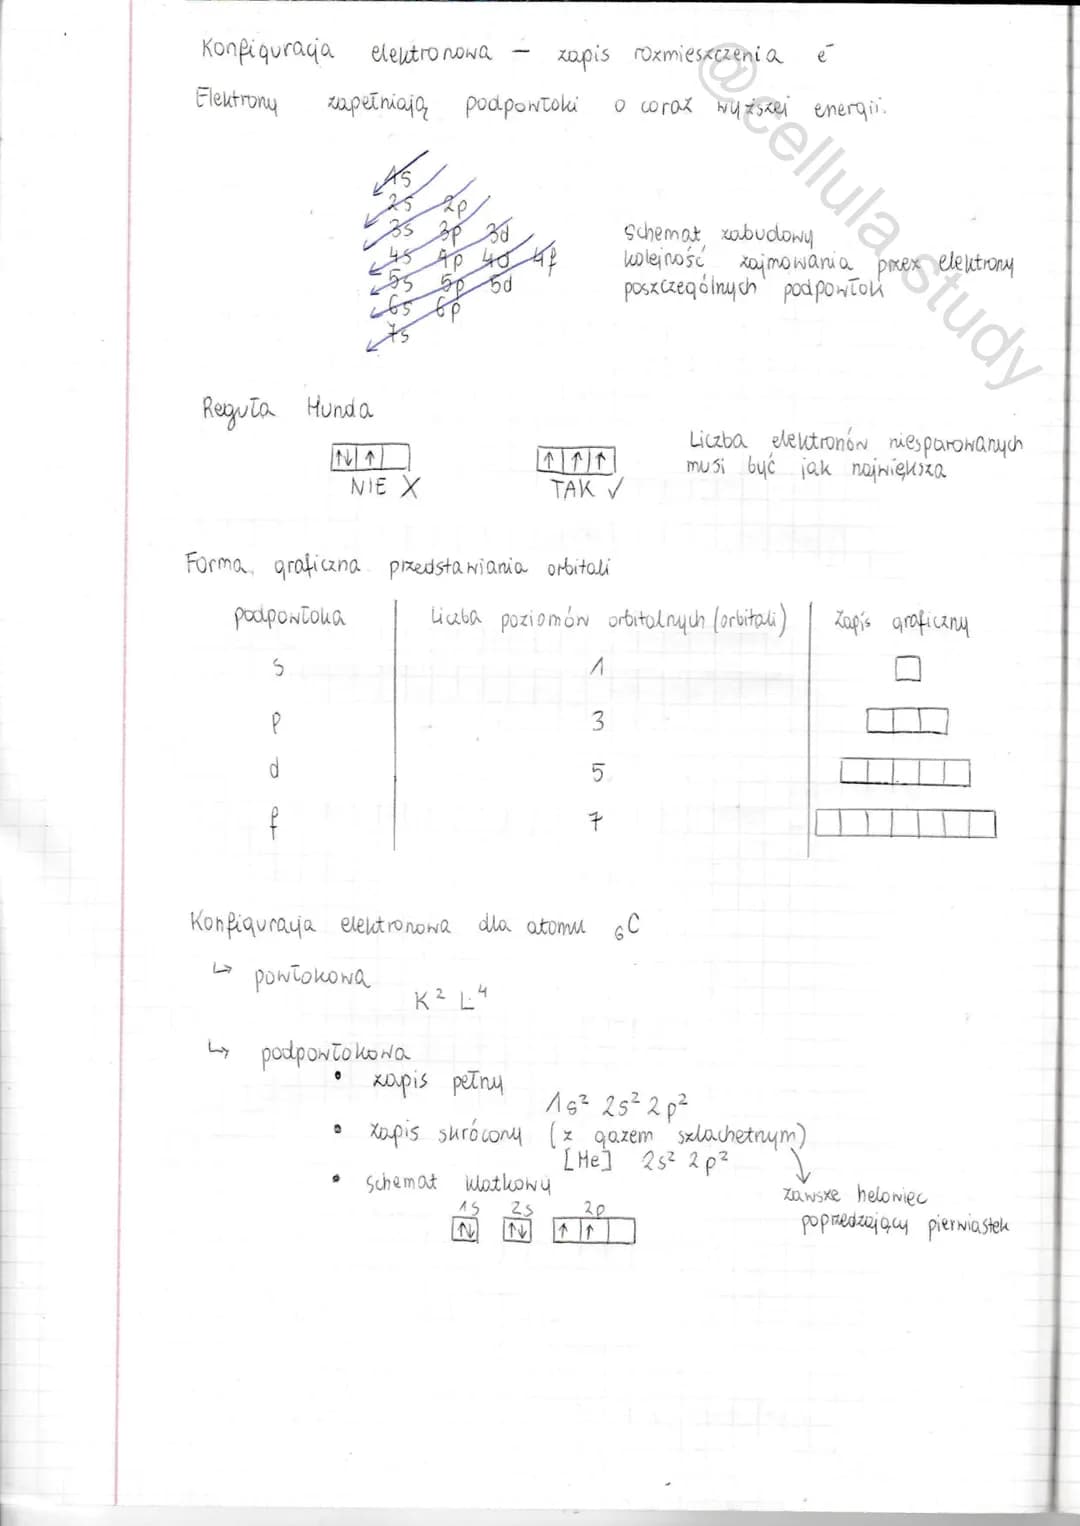 Konfiguracja elektronowa – zapis rozmieszczenia e⁻
Elektrony zapełniają podpowłoki o coraz wyższej energii.
1s
2s 2p
3s 3p 3d
4s 4p 4d 4f
5s 5p 5d
6s 6p
7s
Schemat zabudowy
kolejność zajmowania przez elektrony
poszczególnych podpowłok
@cellula.study
Reguła Hunda
↑↓ ↑
NIE X
↑ ↑ ↑
TAK ✓
Liczba elektronów niesparowanych
musi być jak największa
Forma graficzna przedstawiania orbitali
podpowłoka Liczba poziomów orbitalnych (orbitali) Zapis graficzny
s 1
p 3
d 5
f 7
Konfiguracja elektronowa dla atomu ₆C
↳ powłokowa
K² L⁴
↳ podpowłokowa
• zapis pełny
1s² 2s² 2p²
• zapis skrócony (z gazem szlachetnym)
[He] 2s² 2p²
zawsze helowiec
poprzedzający pierwiastek
• schemat klatkowy
1s 2s 2p
↑↓ ↑↓ ↑ ↑